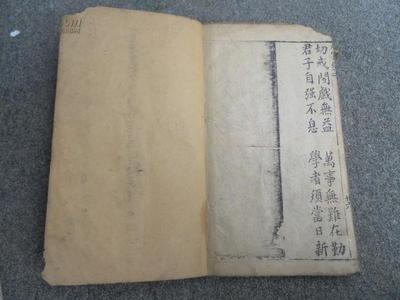 萬事無難在勤
學者須當日新
切戒閑戲無益
君子自强不息